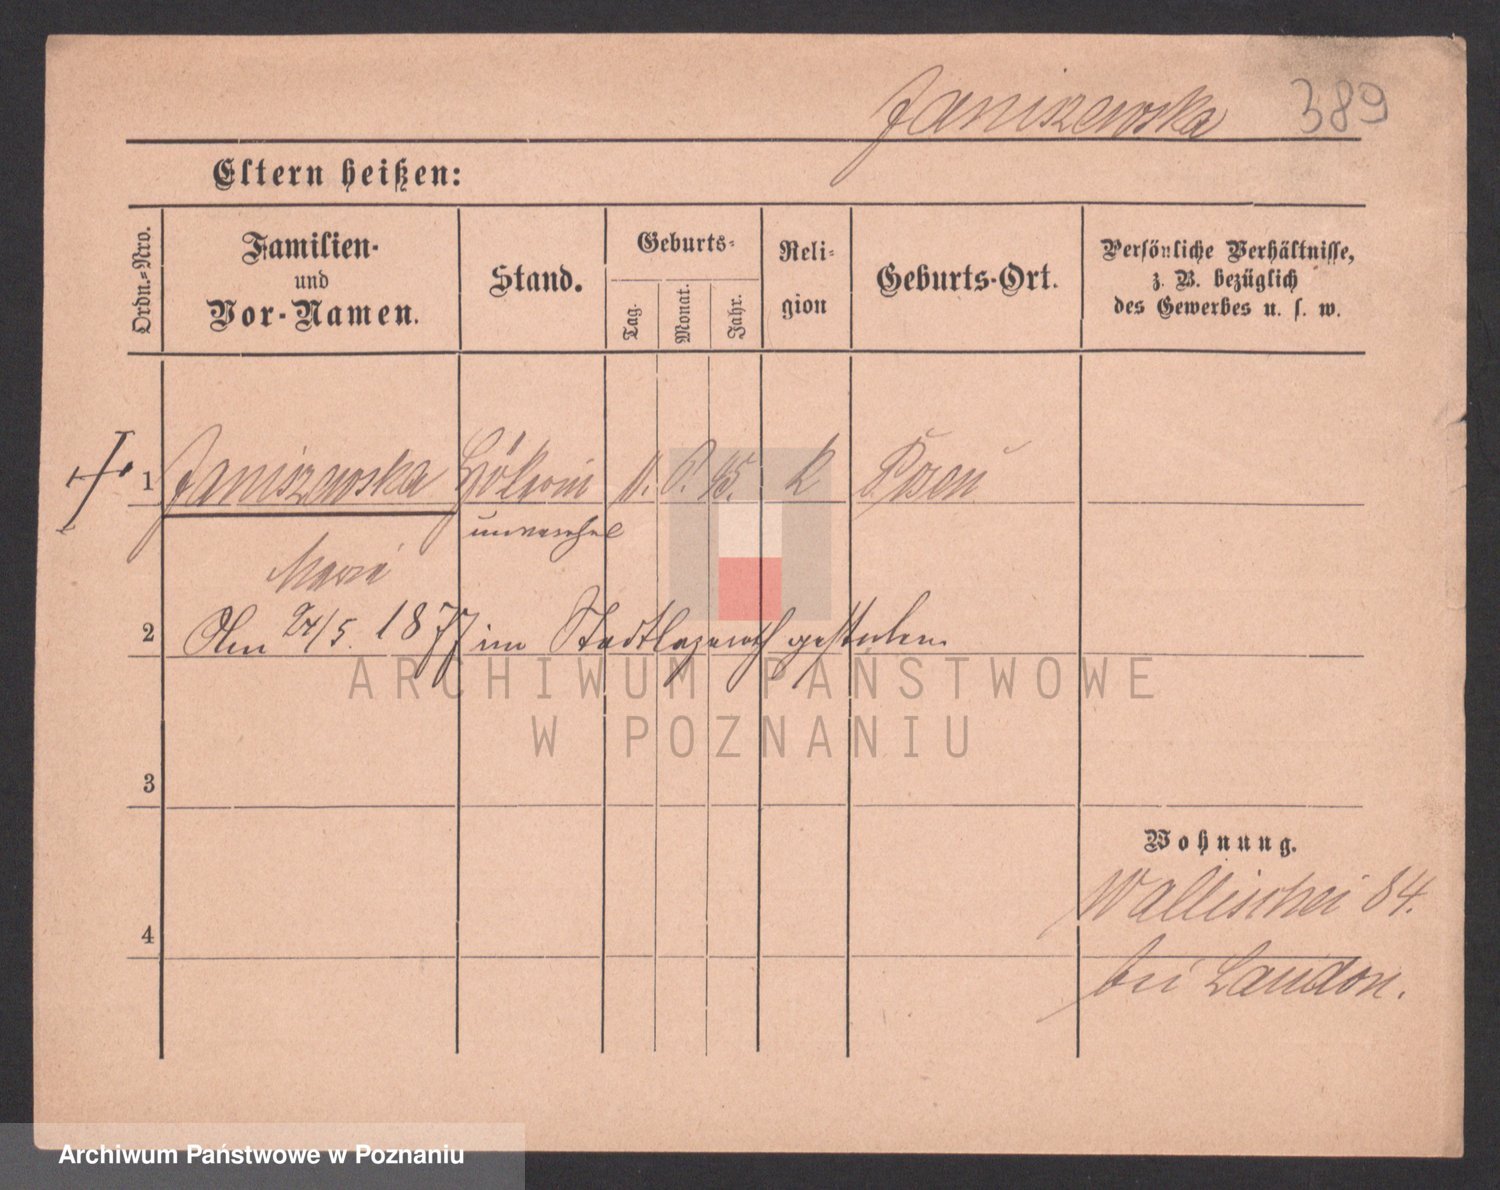 Janiszewska 389
Eltern heißen:
Ordn.-Nro.
Familien-
und
Vor-Namen.
Stand.
Geburts-
Tag.
Monat.
Jahr.
Reli-
gion
Geburts-Ort.
Persönliche Verhältnisse,
z. B. bezüglich
des Gewerbes u. s. w.
1 Janiszewska Hökerin 45. k Posen
unverehel
Maria
2 Am 24/5. 1877 im Stadtlazareth gestorben
ARCHIWUM PAŃSTWOWE
W POZNANIU
3
Wohnung.
Wallischei 84.
4
bei Landon.
Archiwum Państwowe w Poznaniu